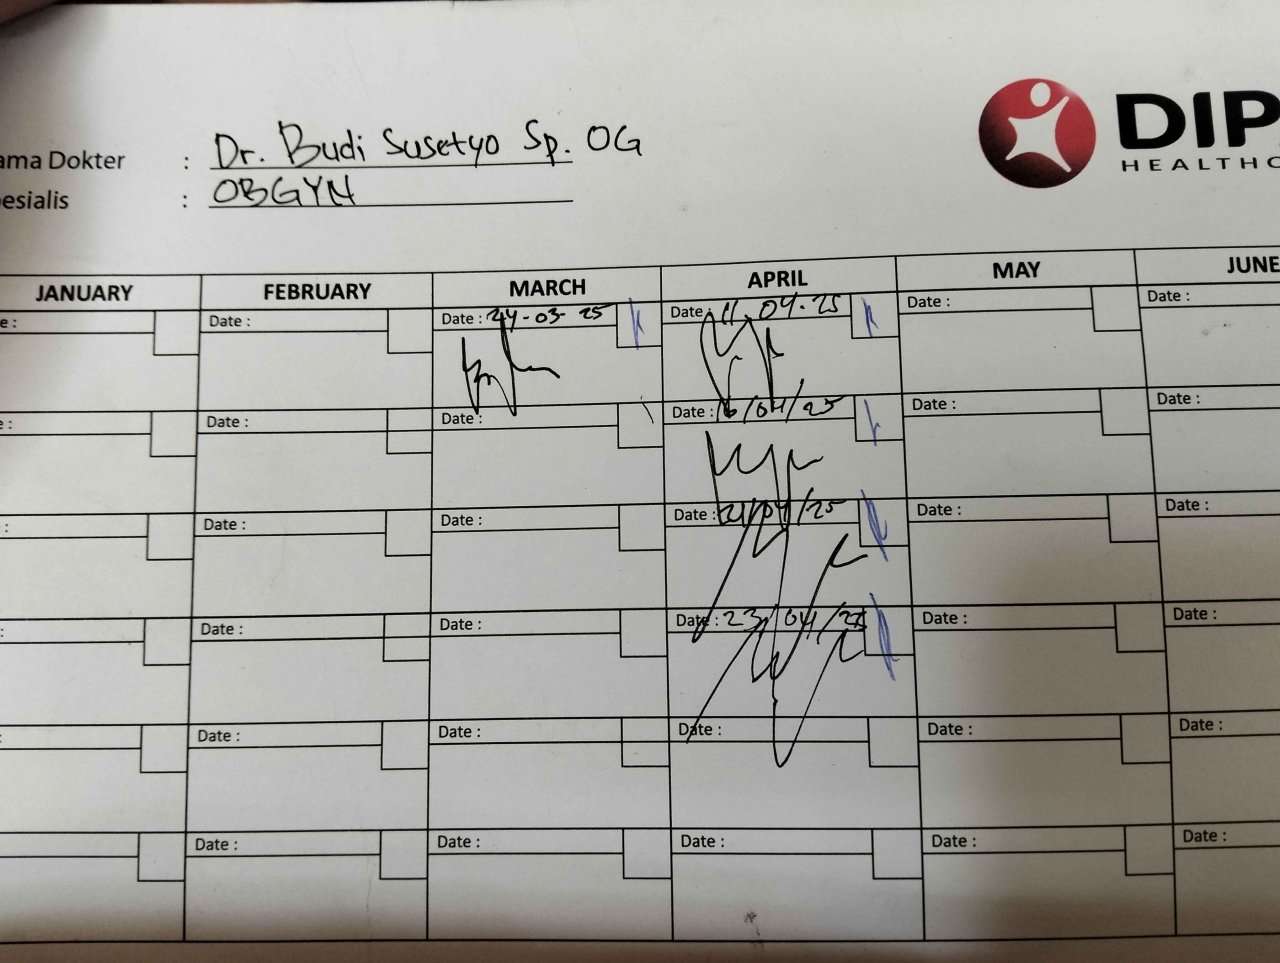 DIP
HEALTHC
ama Dokter : Dr. Budi Susetyo Sp. OG
esialis : OBGYN
JANUARY FEBRUARY MARCH APRIL MAY JUNE
e : Date : Date : 24-03-25 Date : 11.04.25 Date : Date :
e : Date : Date : Date : 16/04/25 Date : Date :
: Date : Date : Date : 21/04/25 Date : Date :
: Date : Date : Date : 23/04/25 Date : Date :
: Date : Date : Date : Date : Date :
Date : Date : Date : Date : Date :